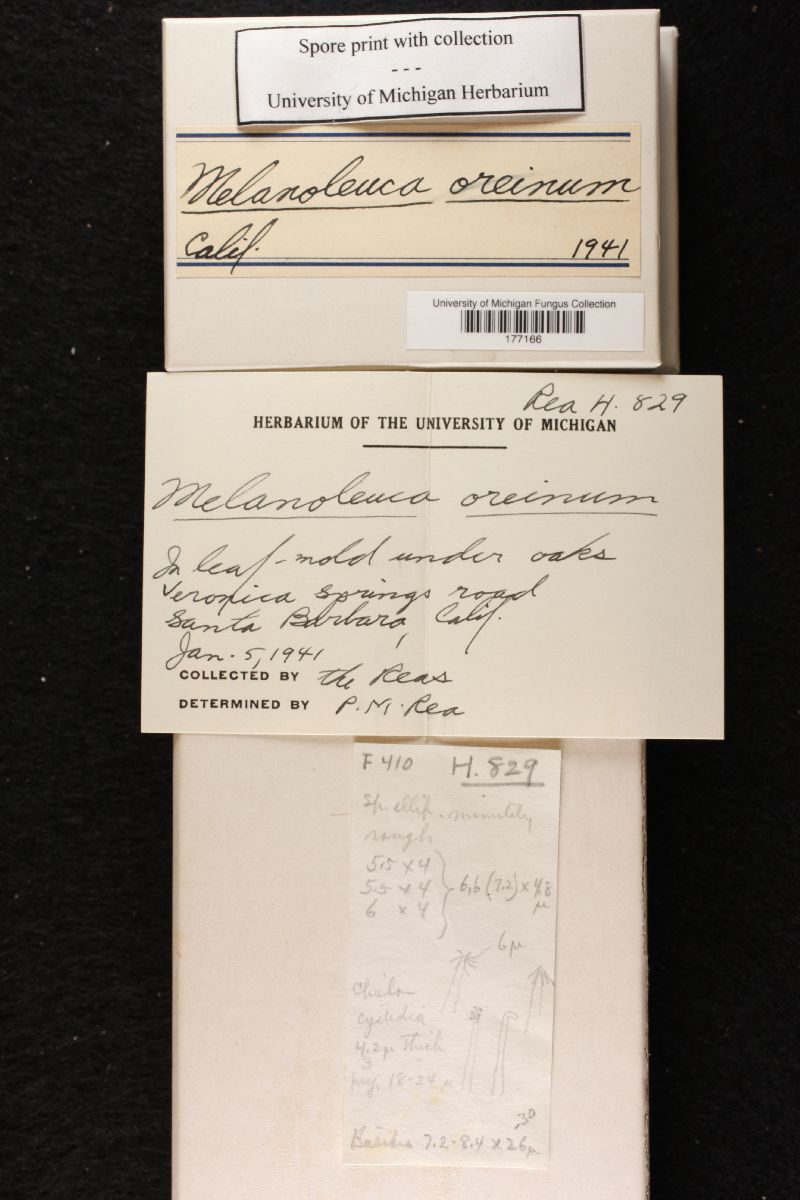 Spore print with collection
- - -
University of Michigan Herbarium
Melanoleuca oreinum
Calif. 1941
University of Michigan Fungus Collection
177166
Rea H. 829
HERBARIUM OF THE UNIVERSITY OF MICHIGAN
Melanoleuca oreinum
In leaf-mold under oaks
Veronica Springs road
Santa Barbara, Calif.
Jan. 5, 1941
COLLECTED BY the Reas
DETERMINED BY P.M. Rea
F 410 H. 829
Sp. ellip. minutely
rough
5.5 x 4
5.5 x 4 6.6 (7.2) x 4.8
6 x 4 µ
6 µ
Cheilo-
cystidia
4.2 µ thick
3
proj. 18-24 µ
30
Basidia 7.2-8.4 x 26 µ